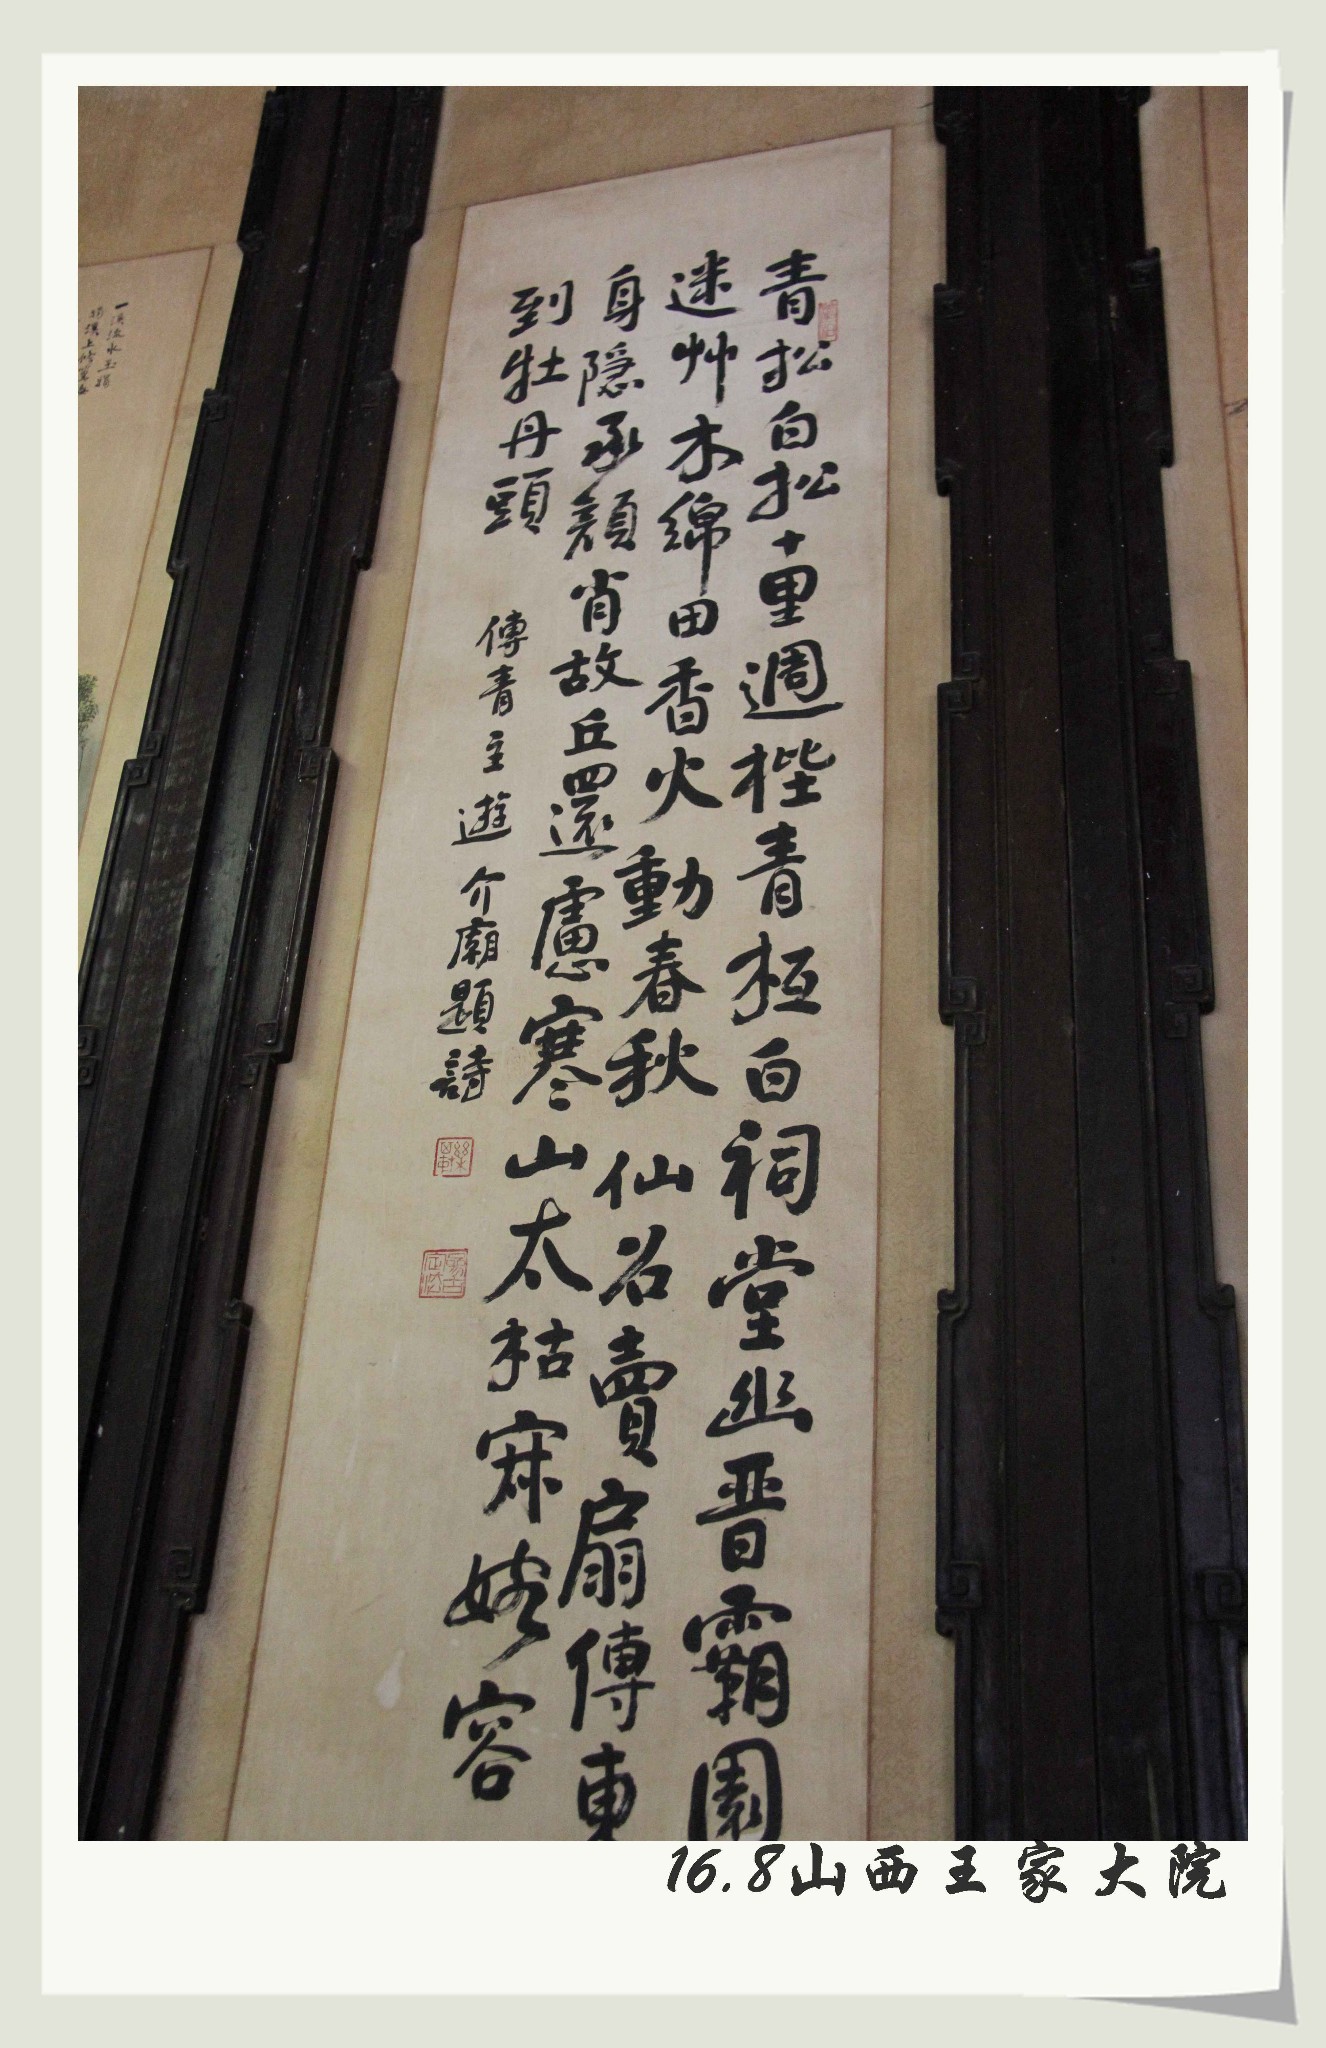 青松白松十里週栣青栢白祠堂幽晋霸園
迷艸木綿田香火動春秋仙名賣扇傳東
身隐承顔肯故丘還慮寒山太枯寂婑容
到牡丹頭
傅青主遊介廟題詩
16.8山西王家大院